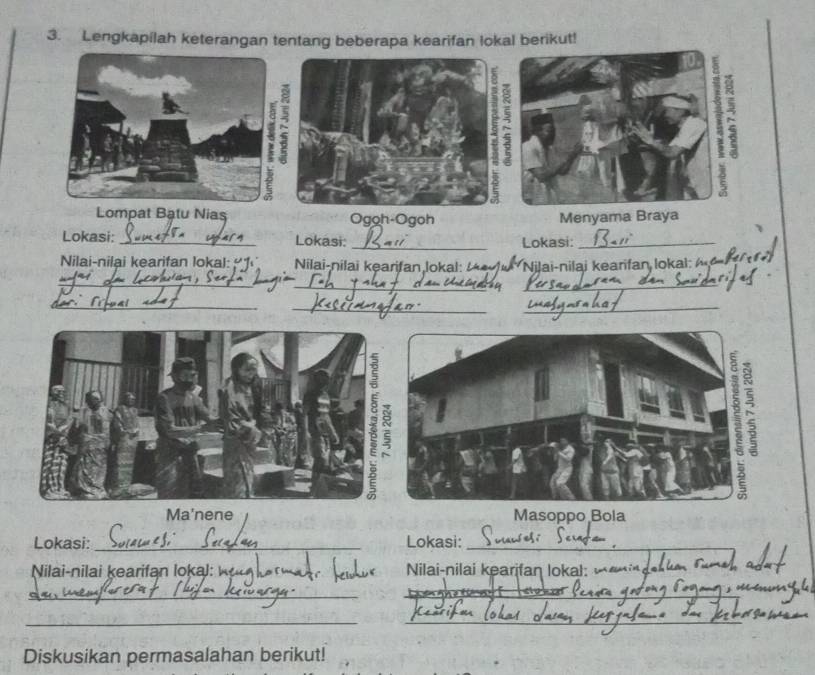 3. Lengkapilah keterangan tentang beberapa kearifan lokal berikut!
Sumber: www.detik.com,
diunduh 7 Juni 2024
Sumber: assets.kompasiana.com,
diunduh 7 Juni 2024
10.
Sumber: www.aswajadewata.com,
diunduh 7 Juni 2024
Lompat Batu Nias
Lokasi: Sumatra utara
Nilai-nilai kearifan lokal: uji
dan, serta bagian
dari ritual adat
Ogoh-Ogoh
Lokasi: Bali
Nilai-nilai kearifan lokal:
roh jahat dan
Menyama Braya
Lokasi: Bali
Nilai-nilai kearifan lokal: mempererat
Persaudaraan dan
masyarakat
Sumber: merdeka.com, diunduh
7 Juni 2024
Sumber: dimensiindonesia.com,
diunduh 7 Juni 2024
Ma'nene
Lokasi: Sulawesi Selatan
Nilai-nilai kearifan lokal: menghormati leluhur
dan mempererat keluarga.
Masoppo Bola
Lokasi: Sulawesi Selatan
Nilai-nilai kearifan lokal: memindahkan rumah adat
secara gotong royong,
kearifan lokal dalam dan kebersamaan
Diskusikan permasalahan berikut!